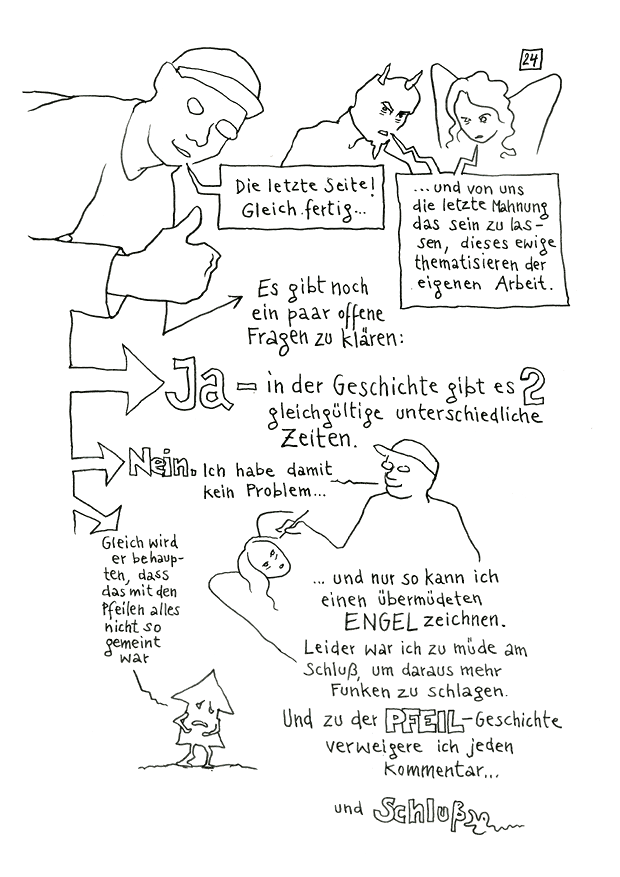 24
Die letzte Seite!
Gleich fertig...
...und von uns
die letzte Mahnung
das sein zu las-
sen, dieses ewige
thematisieren der
eigenen Arbeit.
Es gibt noch
ein paar offene
Fragen zu klären:
Ja - in der Geschichte gibt es 2
gleichgültige unterschiedliche
Zeiten.
Nein. Ich habe damit
kein Problem...
Gleich wird
er behaup-
ten, dass
das mit den
Pfeilen alles
nicht so
gemeint
war
... und nur so kann ich
einen übermüdeten
ENGEL zeichnen.
Leider war ich zu müde am
Schluß, um daraus mehr
Funken zu schlagen.
Und zu der PFEIL-Geschichte
verweigere ich jeden
Kommentar...
und Schluß